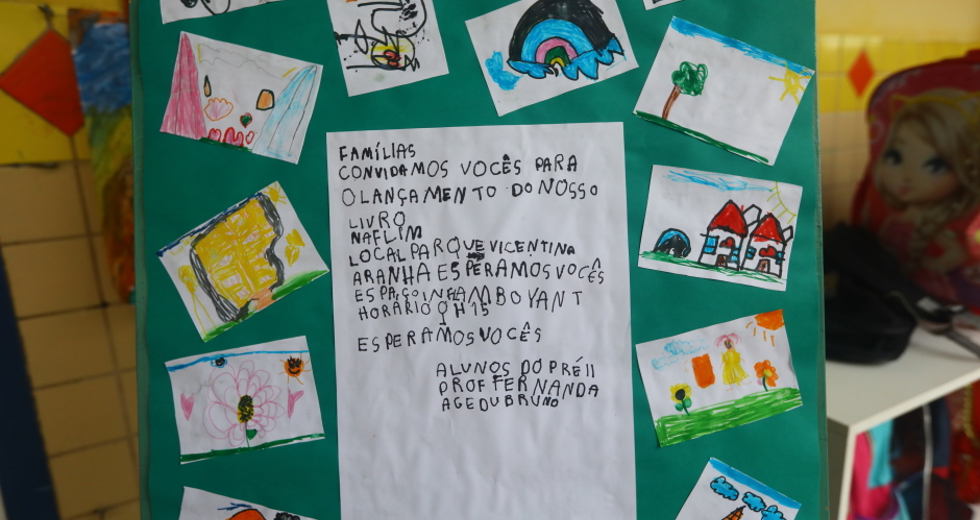 FAMÍLIAS
CONVIDAMOS VOCÊS PARA
O LANÇAMENTO DO NOSSO
LIVRO
NA FLIM
LOCAL PARQUE VICENTINA
ARANHA ESPERAMOS VOCÊS
ESPAÇO INFAMBOYANT
HORÁRIO 9H15
ESPERAMOS VOCÊS
ALUNOS DO PRÉ II
PROF FERNANDA
AGEDUBRUNO